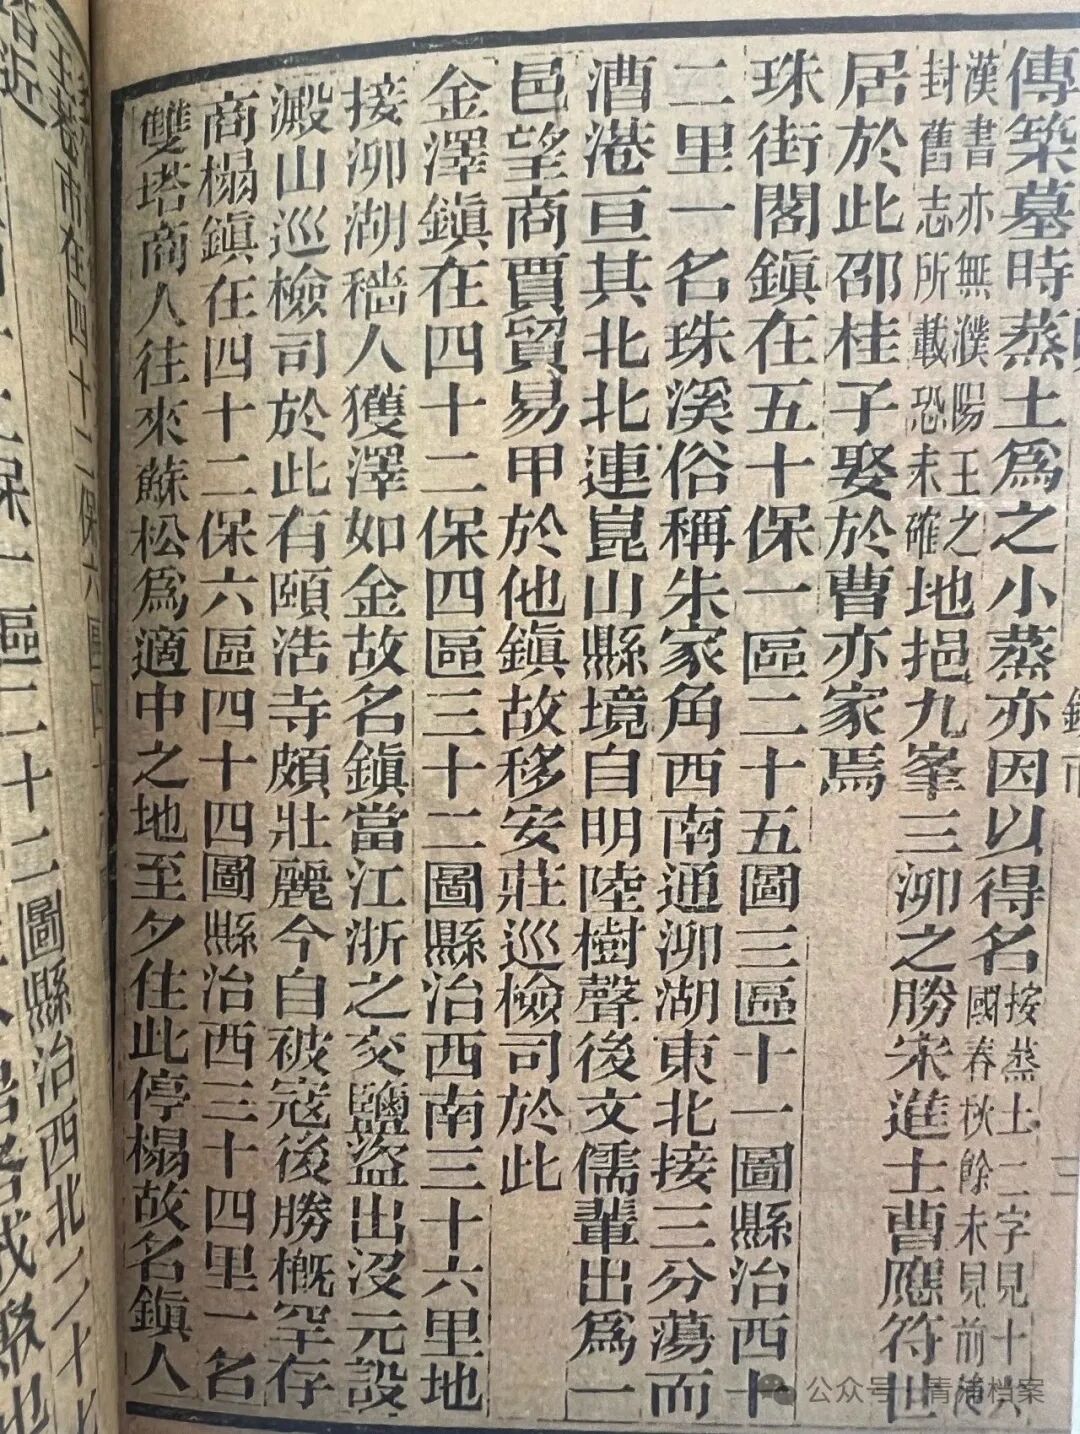 傳築墓時蒸土爲之小蒸亦因以得名按蒸土二字見十六國春秋餘未見前後
漢書亦無濮陽王之封舊志所載恐未確地挹九峯三泖之勝宋進士曹應符世
居於此邵桂子娶於曹亦家焉
珠街閣鎮在五十保一區二十五圖三區十一圖縣治西十
二里一名珠溪俗稱朱家角西南通泖湖東北接三分蕩而
漕港亘其北北連崑山縣境自明陸樹聲後文儒輩出爲一
邑望商賈貿易甲於他鎮故移安莊巡檢司於此
金澤鎮在四十二保四區三十二圖縣治西南三十六里地
接泖湖穡人獲澤如金故名鎮當江浙之交鹽盜出沒元設
澱山巡檢司於此有頤浩寺頗壯麗今自被寇後勝槪罕存
商榻鎮在四十二保六區四十四圖縣治西三十四里一名
雙塔商人往來蘇松爲適中之地至夕住此停榻故名鎮人
市在四十二保六區四十
保一區二十二圖縣治西北二十七
公众号·青浦档案